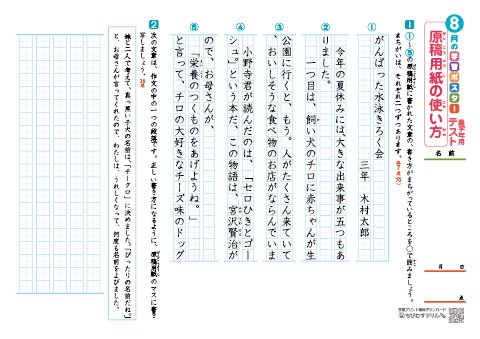 8月の学習ポスターテスト
原稿用紙の使い方
名前
月　日
点
1 ①～⑤の原稿用紙に書かれた文章の、書き方がまちがっているところを○で囲みましょう。
まちがいは、それぞれ二つずつあります。
①
がんばった水泳きろく会
三年　木村太郎
②
今年の夏休みには、大きな出来事が五つもあ
りました。
一つ目は、飼い犬のチロに赤ちゃんが生
③
公園に行くと、もう。人がたくさん来ていて
、おいしそうな食べ物のお店がならんでいま
④
小野寺君が読んだのは、「セロひきとゴー
シュ』という本だ、この物語は、宮沢賢治が
⑤
ので、お母さんが、
「栄養のつくものをあげようね。」
と言って、チロの大好きなチーズ味のドッグ
2 次の文章は、作文の中の一つの段落です。正しい書き方になるように、原稿用紙のマスに書き
写しましょう。
妹と二人で考えて、真っ黒い子犬の名前は、「チークロ」に決めました。「ぴったりの名前だね。」
と、お母さんが言ってくれたので、わたしは、うれしくなって、何度も名前をよびました。
ちびむすドリル